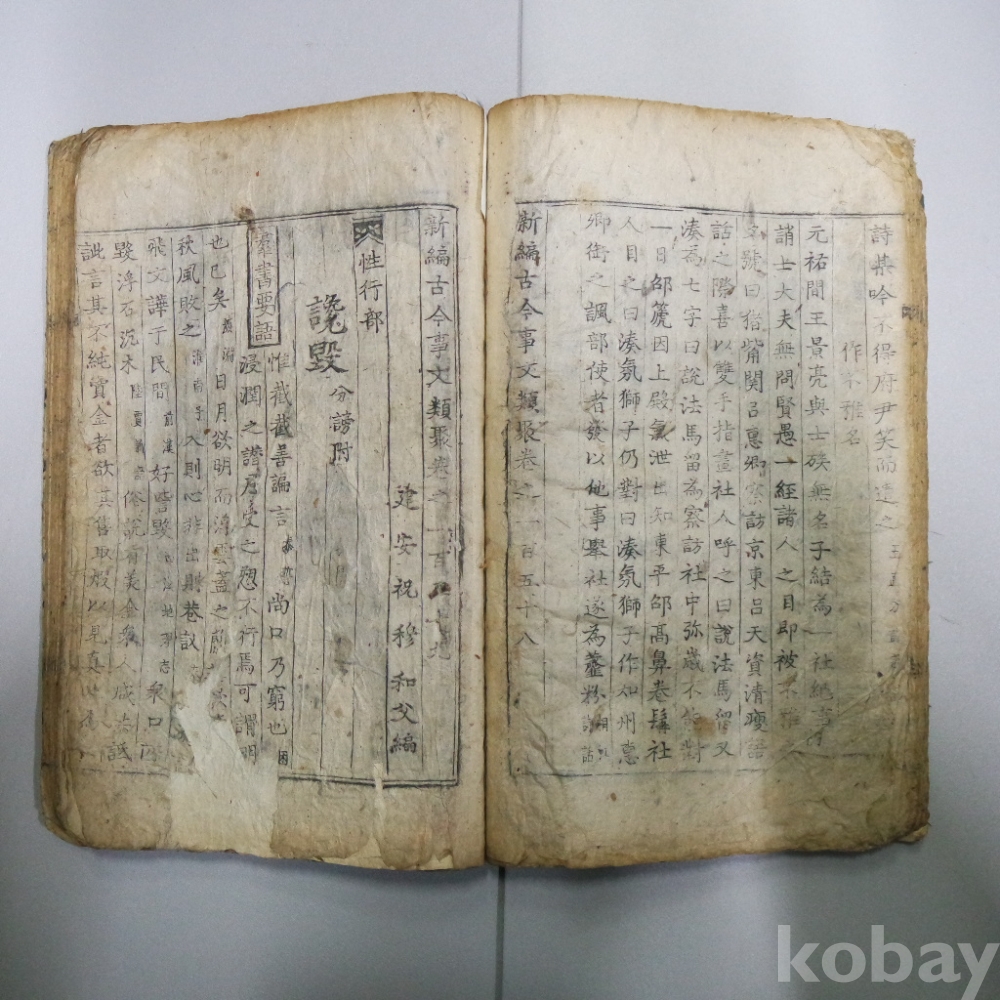 詩某吟不得府尹笑而遣之
作不雅名
元祐間王景亮與士族無名子結為一社
誚士大夫無問賢愚一經諸人之目即被不雅
號曰猪觜関呂惠卿察訪京東呂天資清瘦語
話之際喜以雙手指畫社人呼之曰說法馬留又
湊為七字曰說法馬留為察訪社中弥歲不能對
一日邵篪因上殿氣泄出知東平邵髙鼻卷髯社
人目之曰湊氛獅子仍對曰湊氛獅子作知州惠
卿銜之諷部使者發以他事舉社遂為虀粉
新編古今事文類聚卷之一百五十八
新編古今事文類聚卷之一百五十九
建安祝穆和父編
性行部
讒毀 分謗附
羣書要語 惟截截善諞言 尚口乃窮也 困
浸潤之譖膚受之愬不行焉可謂明
也已矣 日月欲明而浮雲蓋之
秋風敗之 淮南子 入則心非出則巷議
飛文譁于民間 前漢 好訾毀 地理志 衆口所
毀浮石沉木 陸賈 俗說有美金衆人咸共詆
訿言其不純賣金者欲其售取煅以見真
kobay